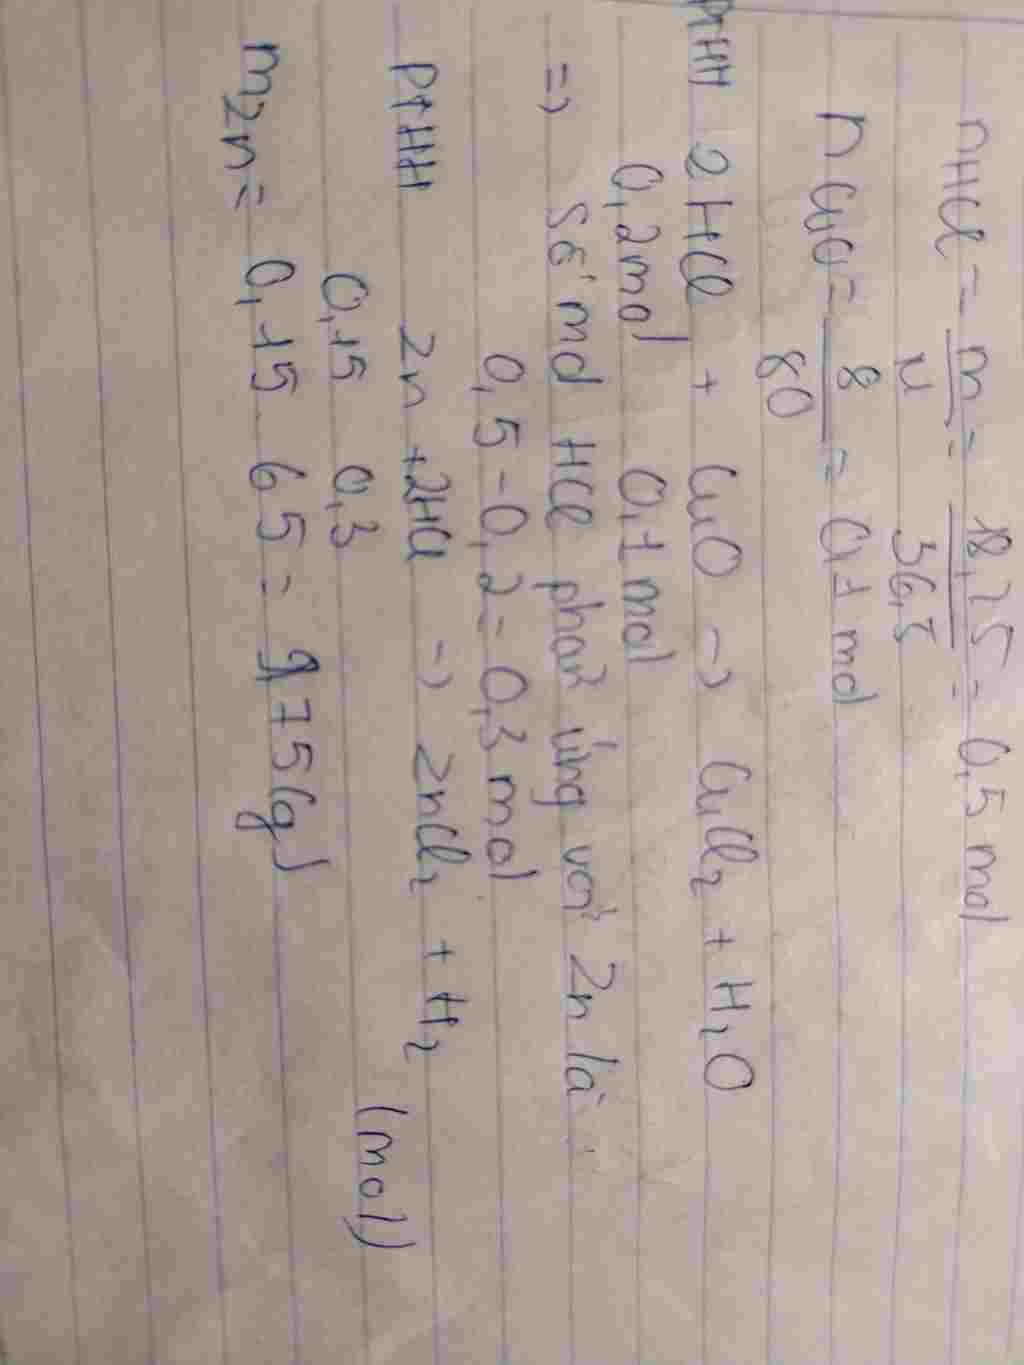 nHCl = m/M = 18,25/36,5 = 0,5 mol
nCuO = 8/80 = 0,1 mol
PTHH 2HCl + CuO → CuCl₂ + H₂O
0,2mol 0,1mol
=> Số mol HCl phản ứng với Zn là
0,5 - 0,2 = 0,3 mol
PTHH Zn + 2HCl → ZnCl₂ + H₂
0,15 0,3 (mol)
mZn = 0,15 . 65 = 9,75(g)